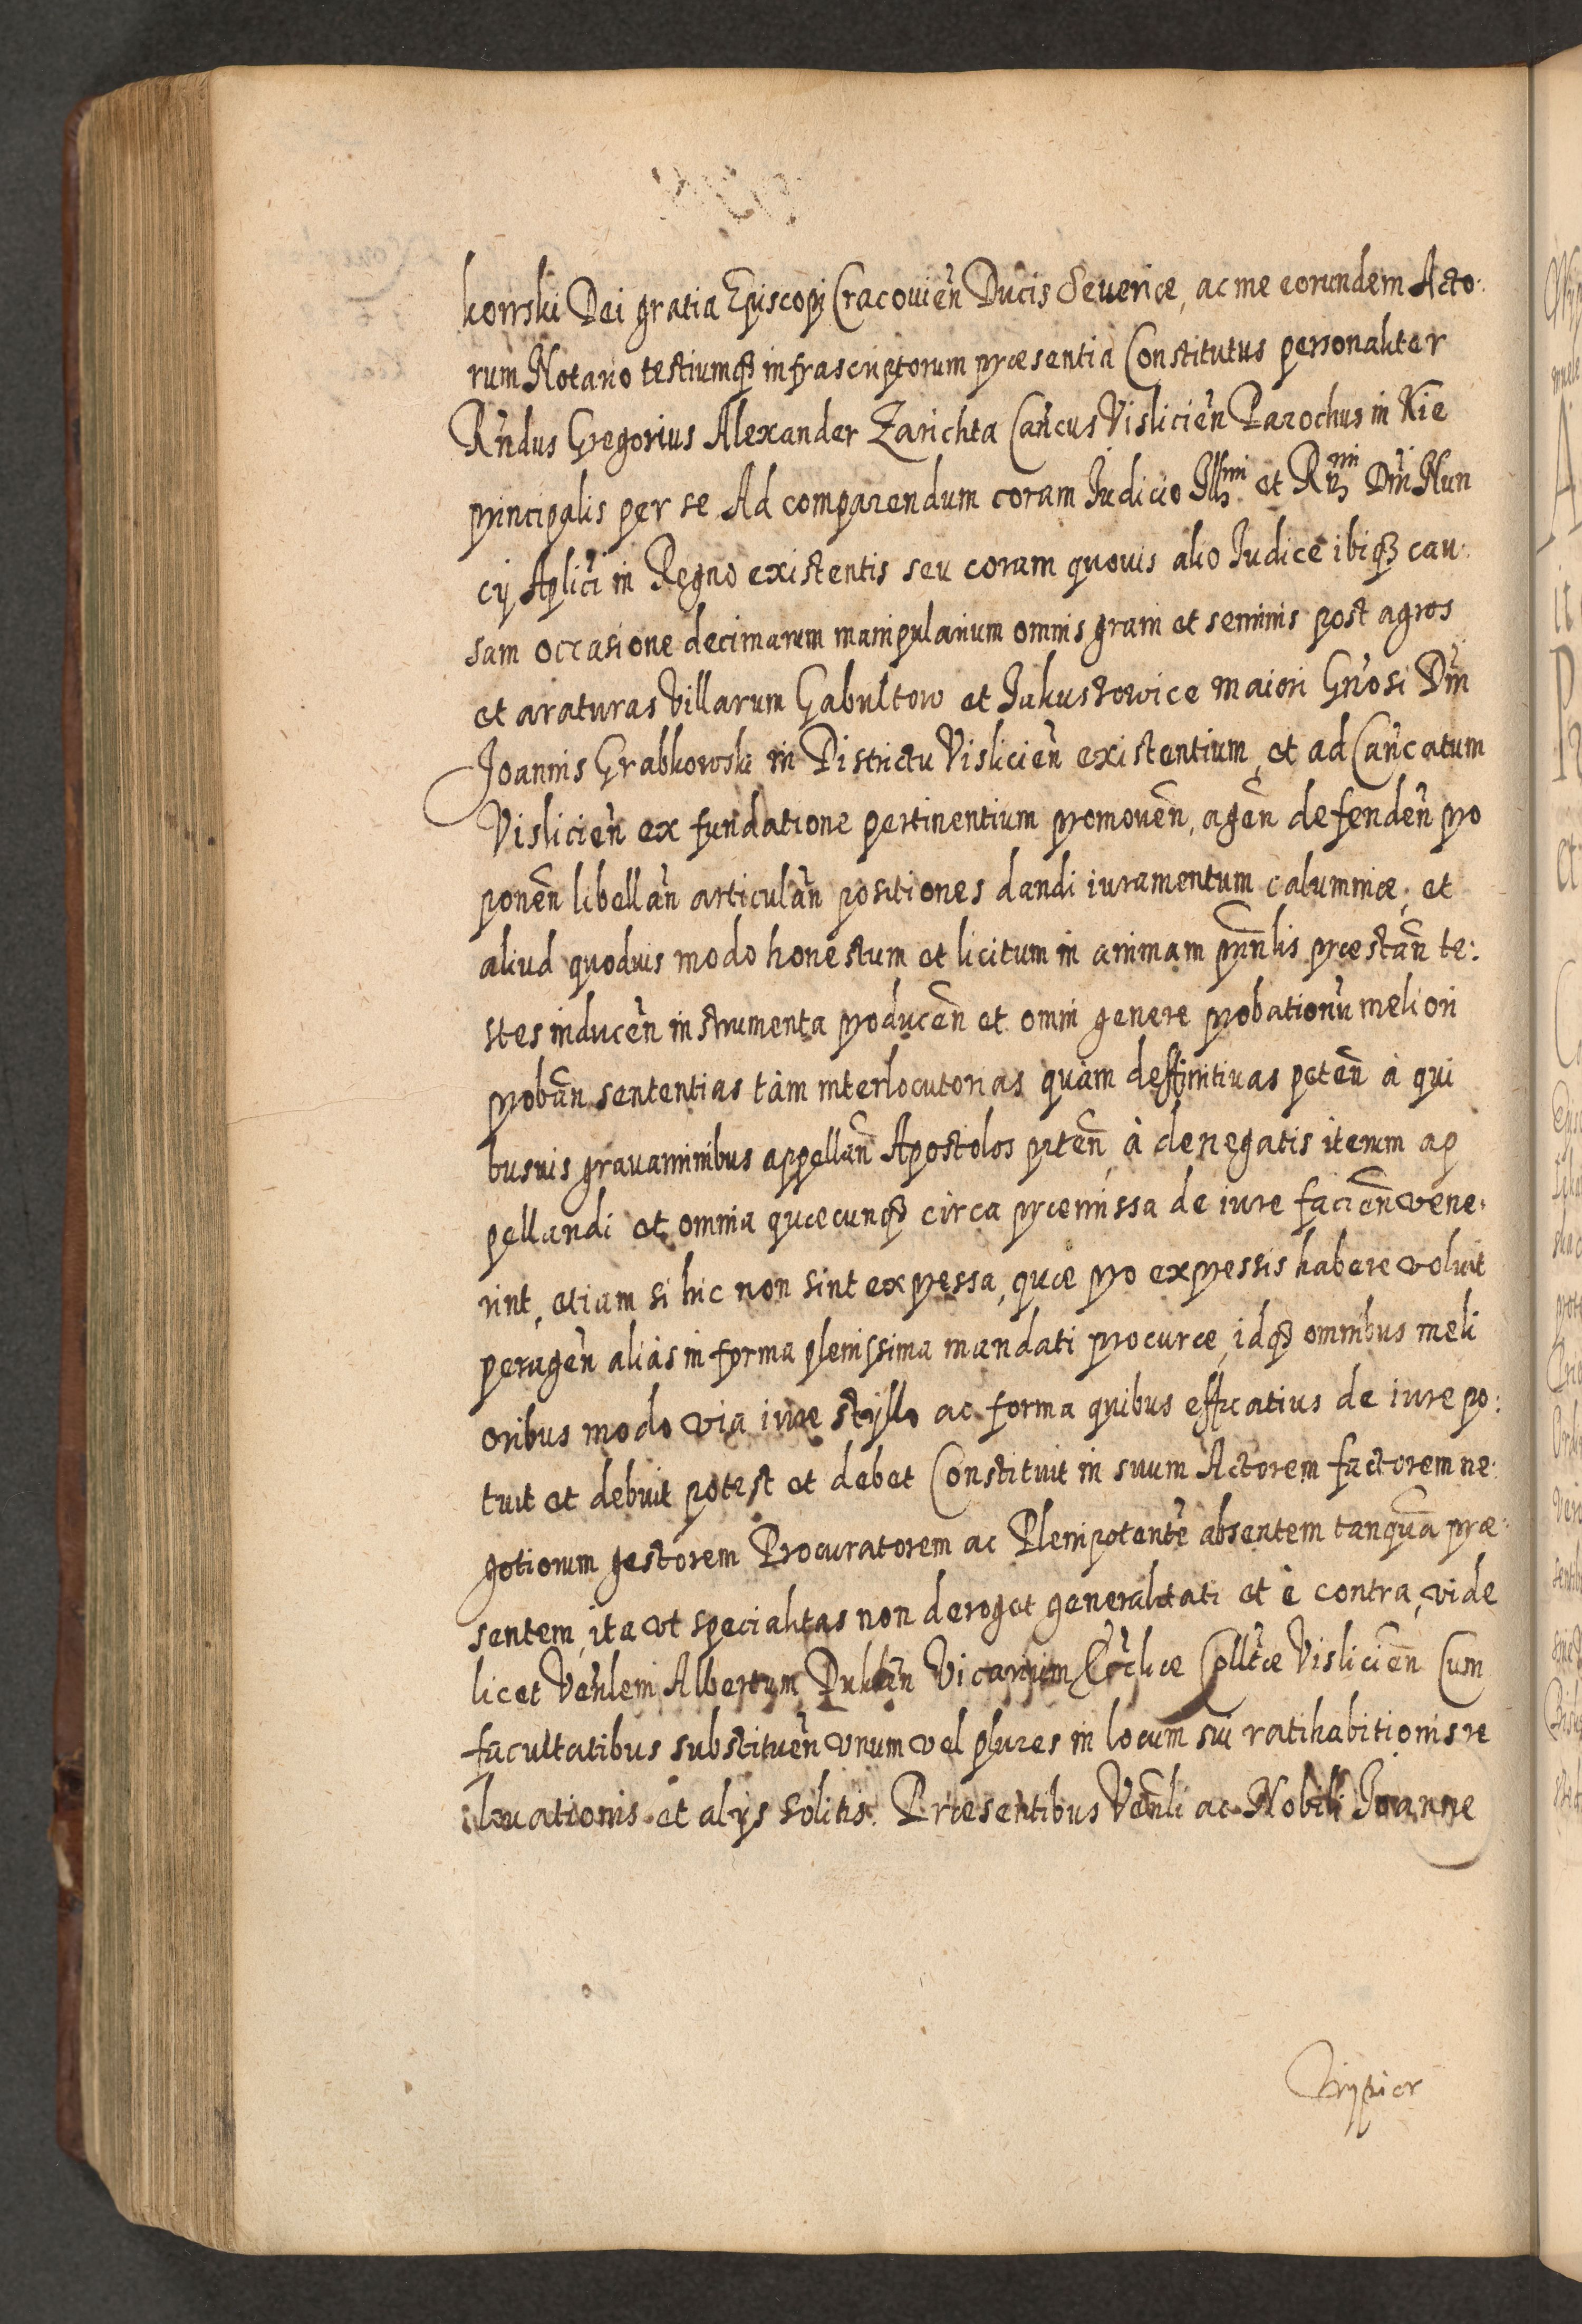 korrski Dei gratia Episcopi Cracovień Ducis Severiæ, ac me eorundem Acto:
rum Notario testiumq́ infrascriptorum præsentia Constitutus personaliter
Rńdus Gregorius Alexander Zarichta Cańcus Vislicień Parochus in Kie
principalis per se Ad comparendum coram Iudicio Illmi et Rmi Dńi Nun
cij Aplici in Regno existentis seu coram quovis alio Iudice ibiq́ cau:
sam occasione decimarum manipularium omnis grani et seminis post agros
et araturas Villarum Gabultow et Jakustowice maiori Gńosi Dńi
Joannis Grabkowski in Districtu Vislicień existentium, et ad Cańcatum
Vislicień ex fundatione pertinentium promoveń, ageń defendeń pro
poneń libellań articulań positiones dandi iuramentum calumniæ, et
aliud quodvis modo honestum et licitum in animam pńnlis præstań te:
stes induceń instrumenta produceń et omni genere probationũ meliori
probań sententias tàm interlocutorias quàm deffinitivas peteń à qui
busvis gravaminibus appellań Apostolos peteń, à denegatis iterum ap
pellandi et omnia quæcunq́ circa præmissa de iure facień vene:
rint, etiam si hic non sint expressa, quæ pro expressis habere voluit
perageń aliàs in forma plenissima mandati procuræ, idq́ omnibus meli
oribus modo via iure styllo ac forma quibus efficatius de iure po:
tuit et debuit potest et debet Constituit in suum Actorem factorem ne:
gotiorum gestorem Procuratorem ac Plenipotentẽ absentem tanquã præ:
sentem, ita vt specialitas non deroget generalitati et è contra, vide
licet Veńlem Albertum Vicarium Ecclicæ Collťæ Vislicień Cum
facultatibus substitueń vnum vel plures in locum sui ratihabitionis re
levationis et alijs solitis. Præsentibus Veńli ac Nobili Joanne